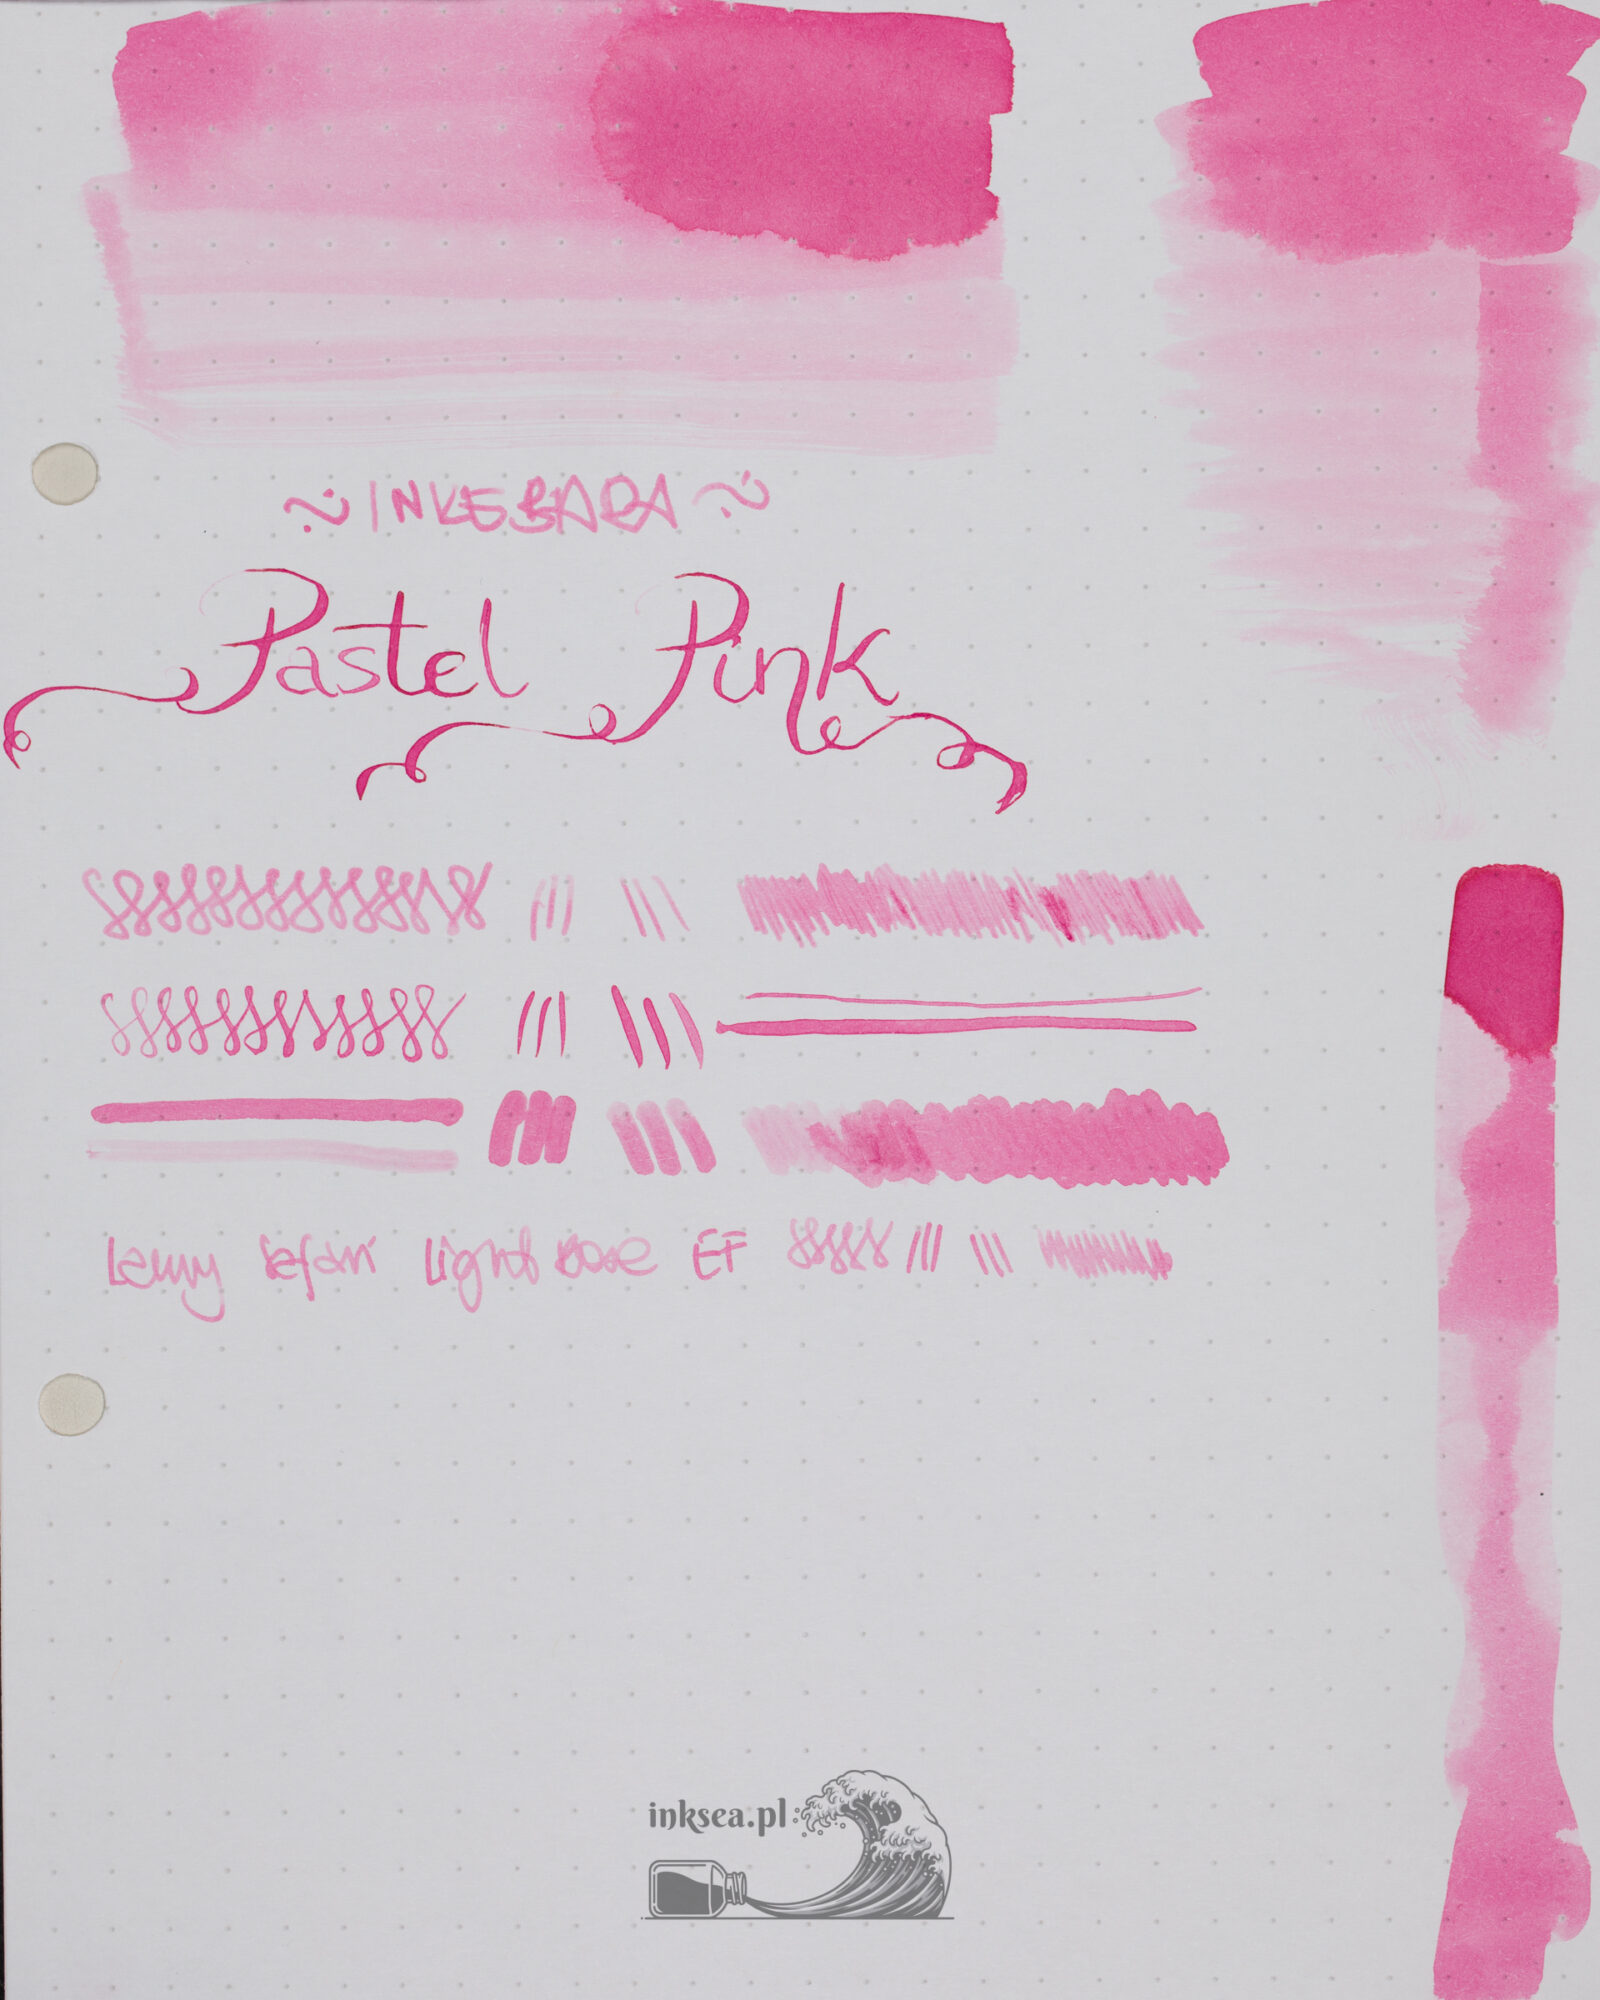 ~ INKEBARA ~
Pastel Pink
Lamy Safari Light Rose EF
inksea.pl